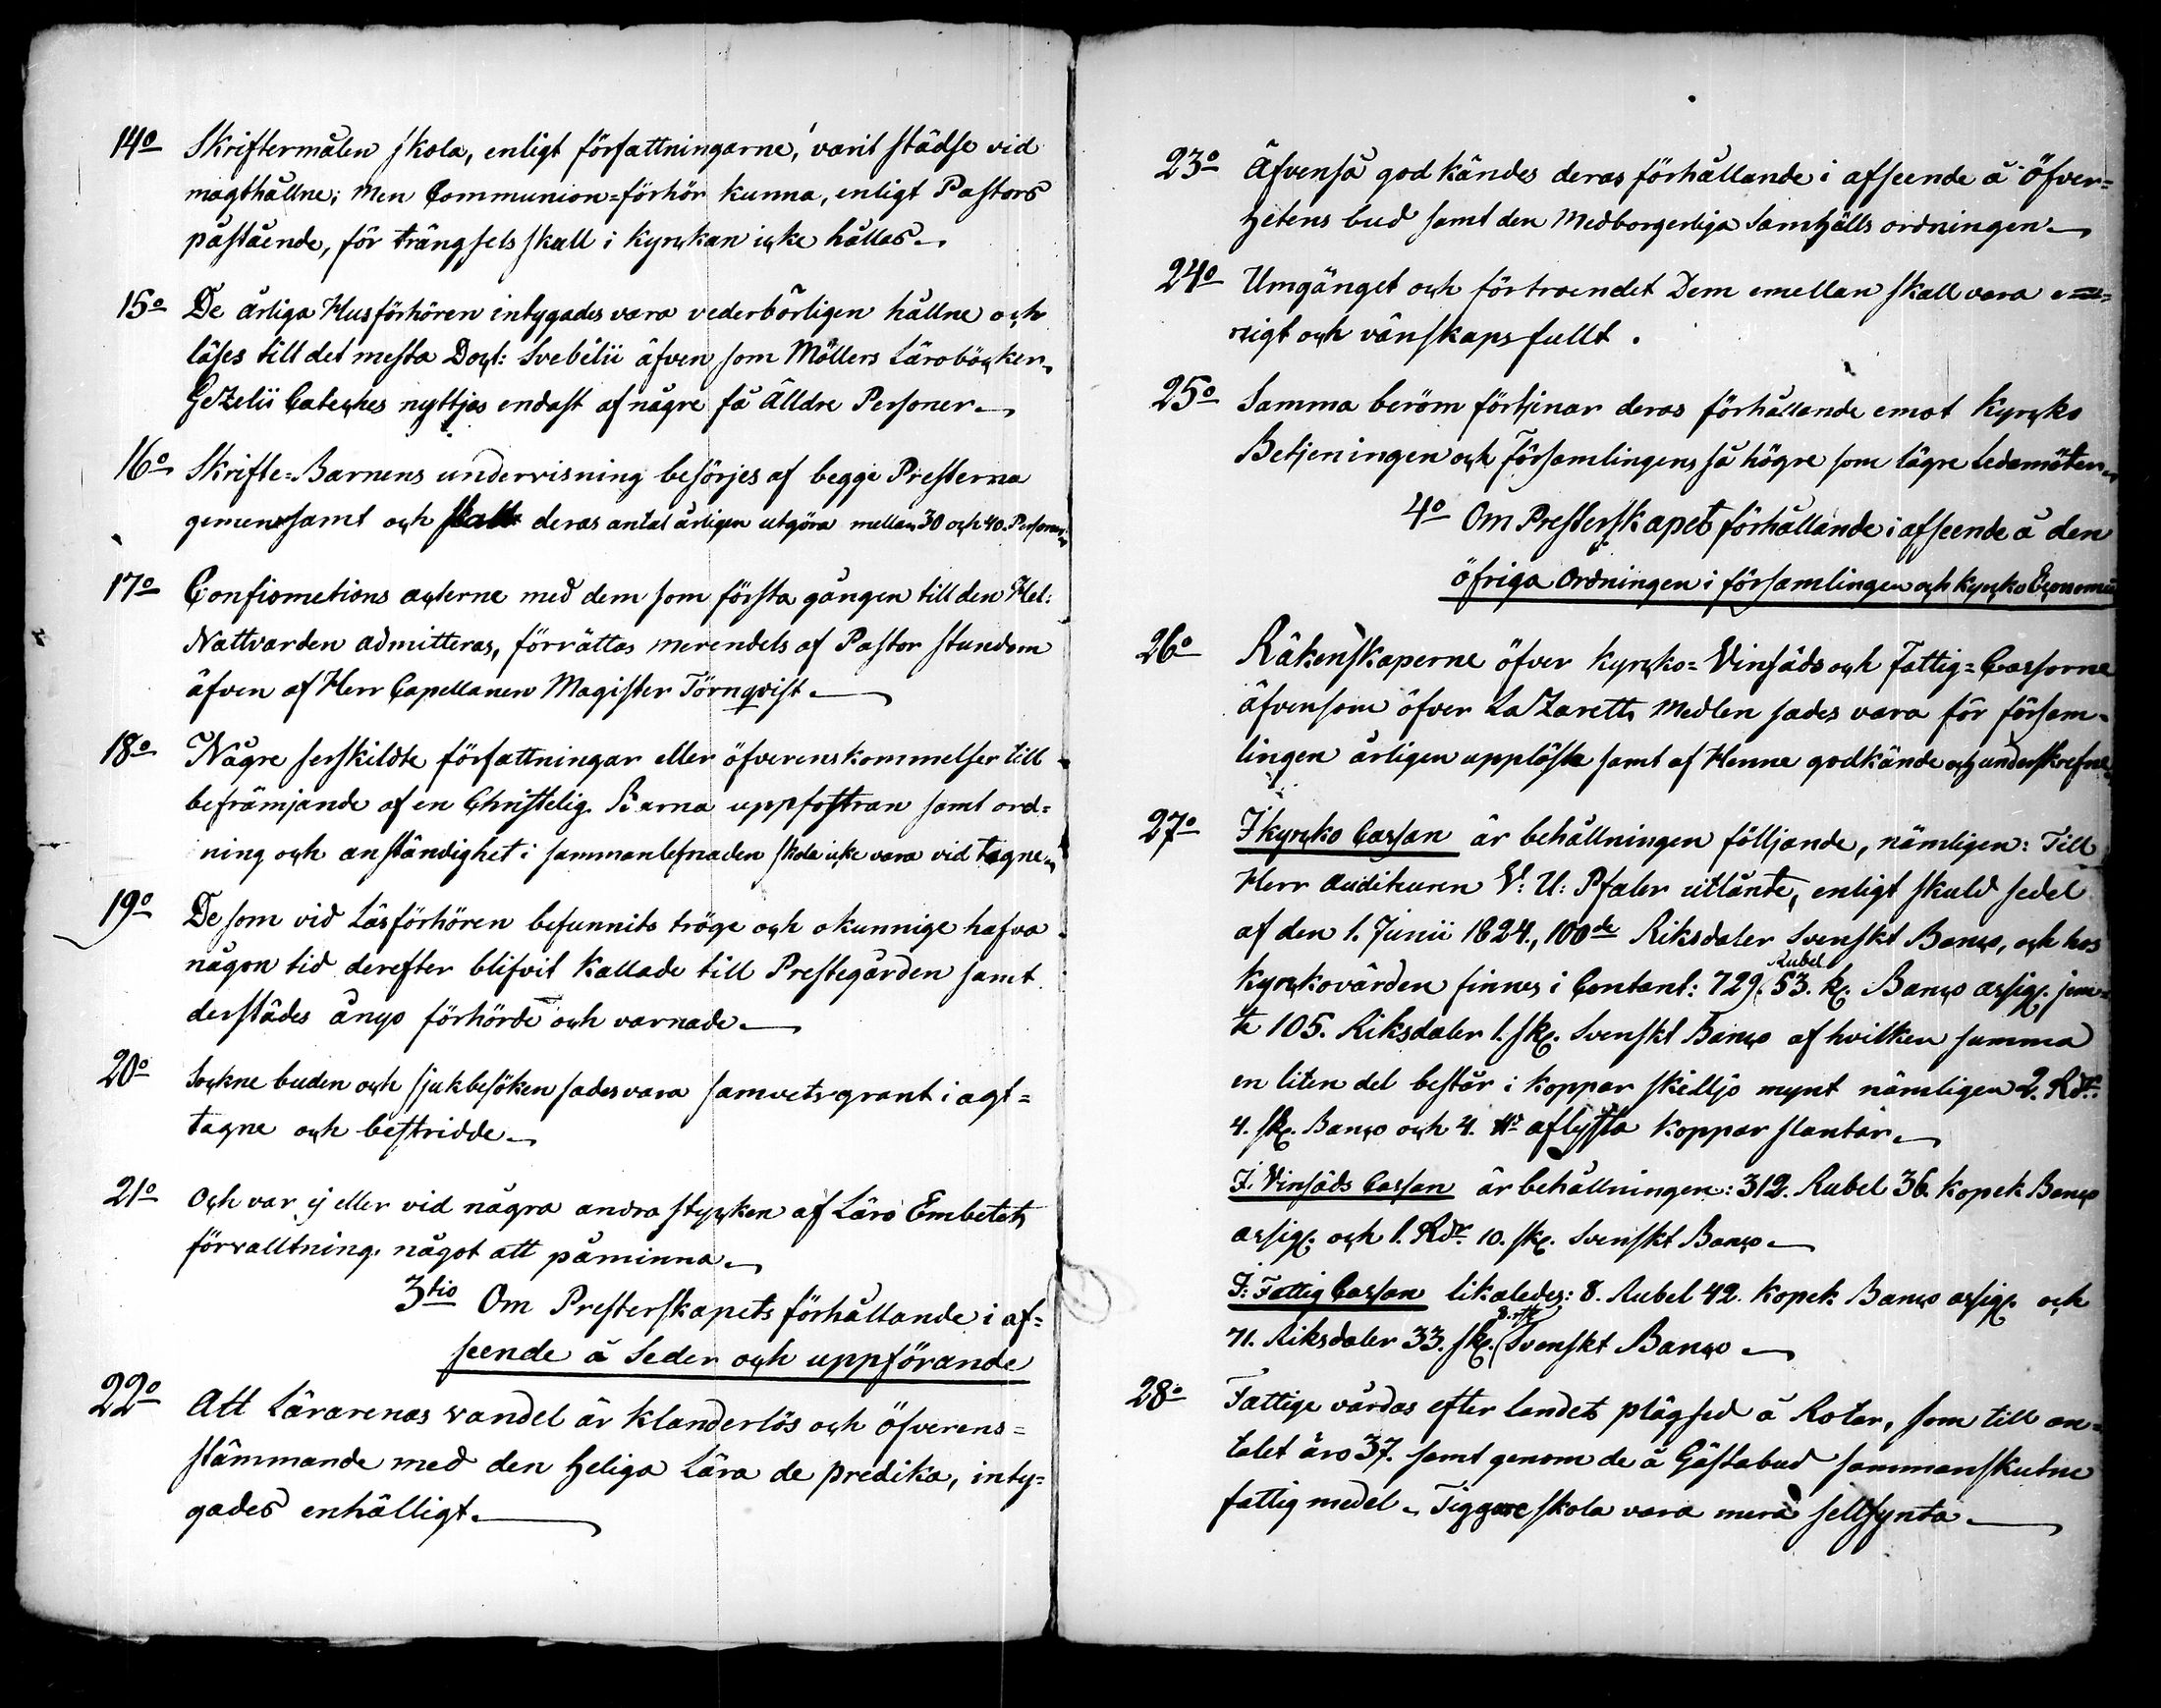 14o Skriftermålen skola, enligt författningarne, varit städse vid
magthållne; men Communion=förhör kunna, enligt Pastors
påstående, för trängsels skull i Kyrckan icke hållas.
15o De årliga Husförhören intygades vara vederbörligen hållne och
läses till det mesta Doct: Svebilii äfven som Möllers Läroböcker.
Gezelii Cateches nyttjas endast af någre få Älldre Personer.
16o Skrifte=Barnens undervisning besörjes af begge Presterna
gemensamt och deras antal årligen utgöra mellan 30 och 40. Personer.
17o Confirmations acterne med dem som första gången till den Hel:
Nattvarden admitteras, förrättas merendels af Pastor stundom
äfven af Herr Capellanen Magister Törnqvist.
18o Någre serskildte författningar eller öfverenskommelser till
befrämjande af en Christelig Barna uppfostran samt ord=
ning och anständighet i sammanlefnaden skola icke vara vid tagne.
19o De som vid Läsförhören befunnits tröge och okunnige hafva
någon tid derefter blifvit Kallade till Prestegården samt
derstädes ånyo förhörde och varnade.
20o Sockne buden och sjukbesöken sades vara samvetsgrant i agt=
tagne och bestridde.
21o Och var ej eller vid några andra stycken af Läro Embetets
förvalltning något att påminna.
3tio Om Presterskapets förhållande i af=
seende å Seder och uppförande
22o Att Lärarenas vandel är klanderlös och öfverens=
stämmande med den heliga Lära de predika, inty=
gades enhälligt.
23o Äfvenså god kändes deras förhållande i afseende å Öfver=
hetens bud samt den Medborgerliga Samhälls ordningen.
24o Umgänget och förtroendet Dem emellan skall vara e=
nigt och vänskapsfullt.
25o Samma beröm förtjenar deras förhållande emot Kyrcko
Betjeningen och Församlingens så högre som lägre Ledamöter.
4o Om Presterskapets förhållande i afseende å den
öfriga Ordningen i församlingen och Kyrcko Economie
26o Räkenskaperne öfver Kyrcko= Vinsäds och Fattig=Cassorne
äfvensom öfver Lazaretts Medlen sades vara för försam=
lingen årligen upplöste samt af Henne godkände och underskrefne.
27o I kyrcko Cassan är behållningen följande, nämligen: Till
Herr Auditeuren V: U: Pfaler utlånte, enligt skuld sedel
af den 1. Junii 1824., 100de Riksdaler Svenskt Banco, och hos
Kyrckovärden finnes i Contant: 729. Rubel 53. k. Banco assig. jem=
te 105. Riksdaler 1. sk. Svenskt Banco af hvilken summa
en liten del består i koppar skilljo mynt nämligen 2. Rdr.
4. sk. Banco och 4. aflyssta koppar slantar.
I. Vinsäds Cassan är behållningen: 312. Rubel 36. Kopek Banco
assig. och 1. Rdr. 10. sk. Svenskt Banco.
I: Fattig Cassan likaledes: 8. Rubel 42. Kopek Banco assig. och
71. Riksdaler 33. sk. Svenskt Banco.
28o Fattige vårdas efter landets plägsed å Rotar, som till an=
talet äro 37. samt genom de å Gästabud sammanskutne
fattig medel. Tiggare skola vara mera sellsynta.